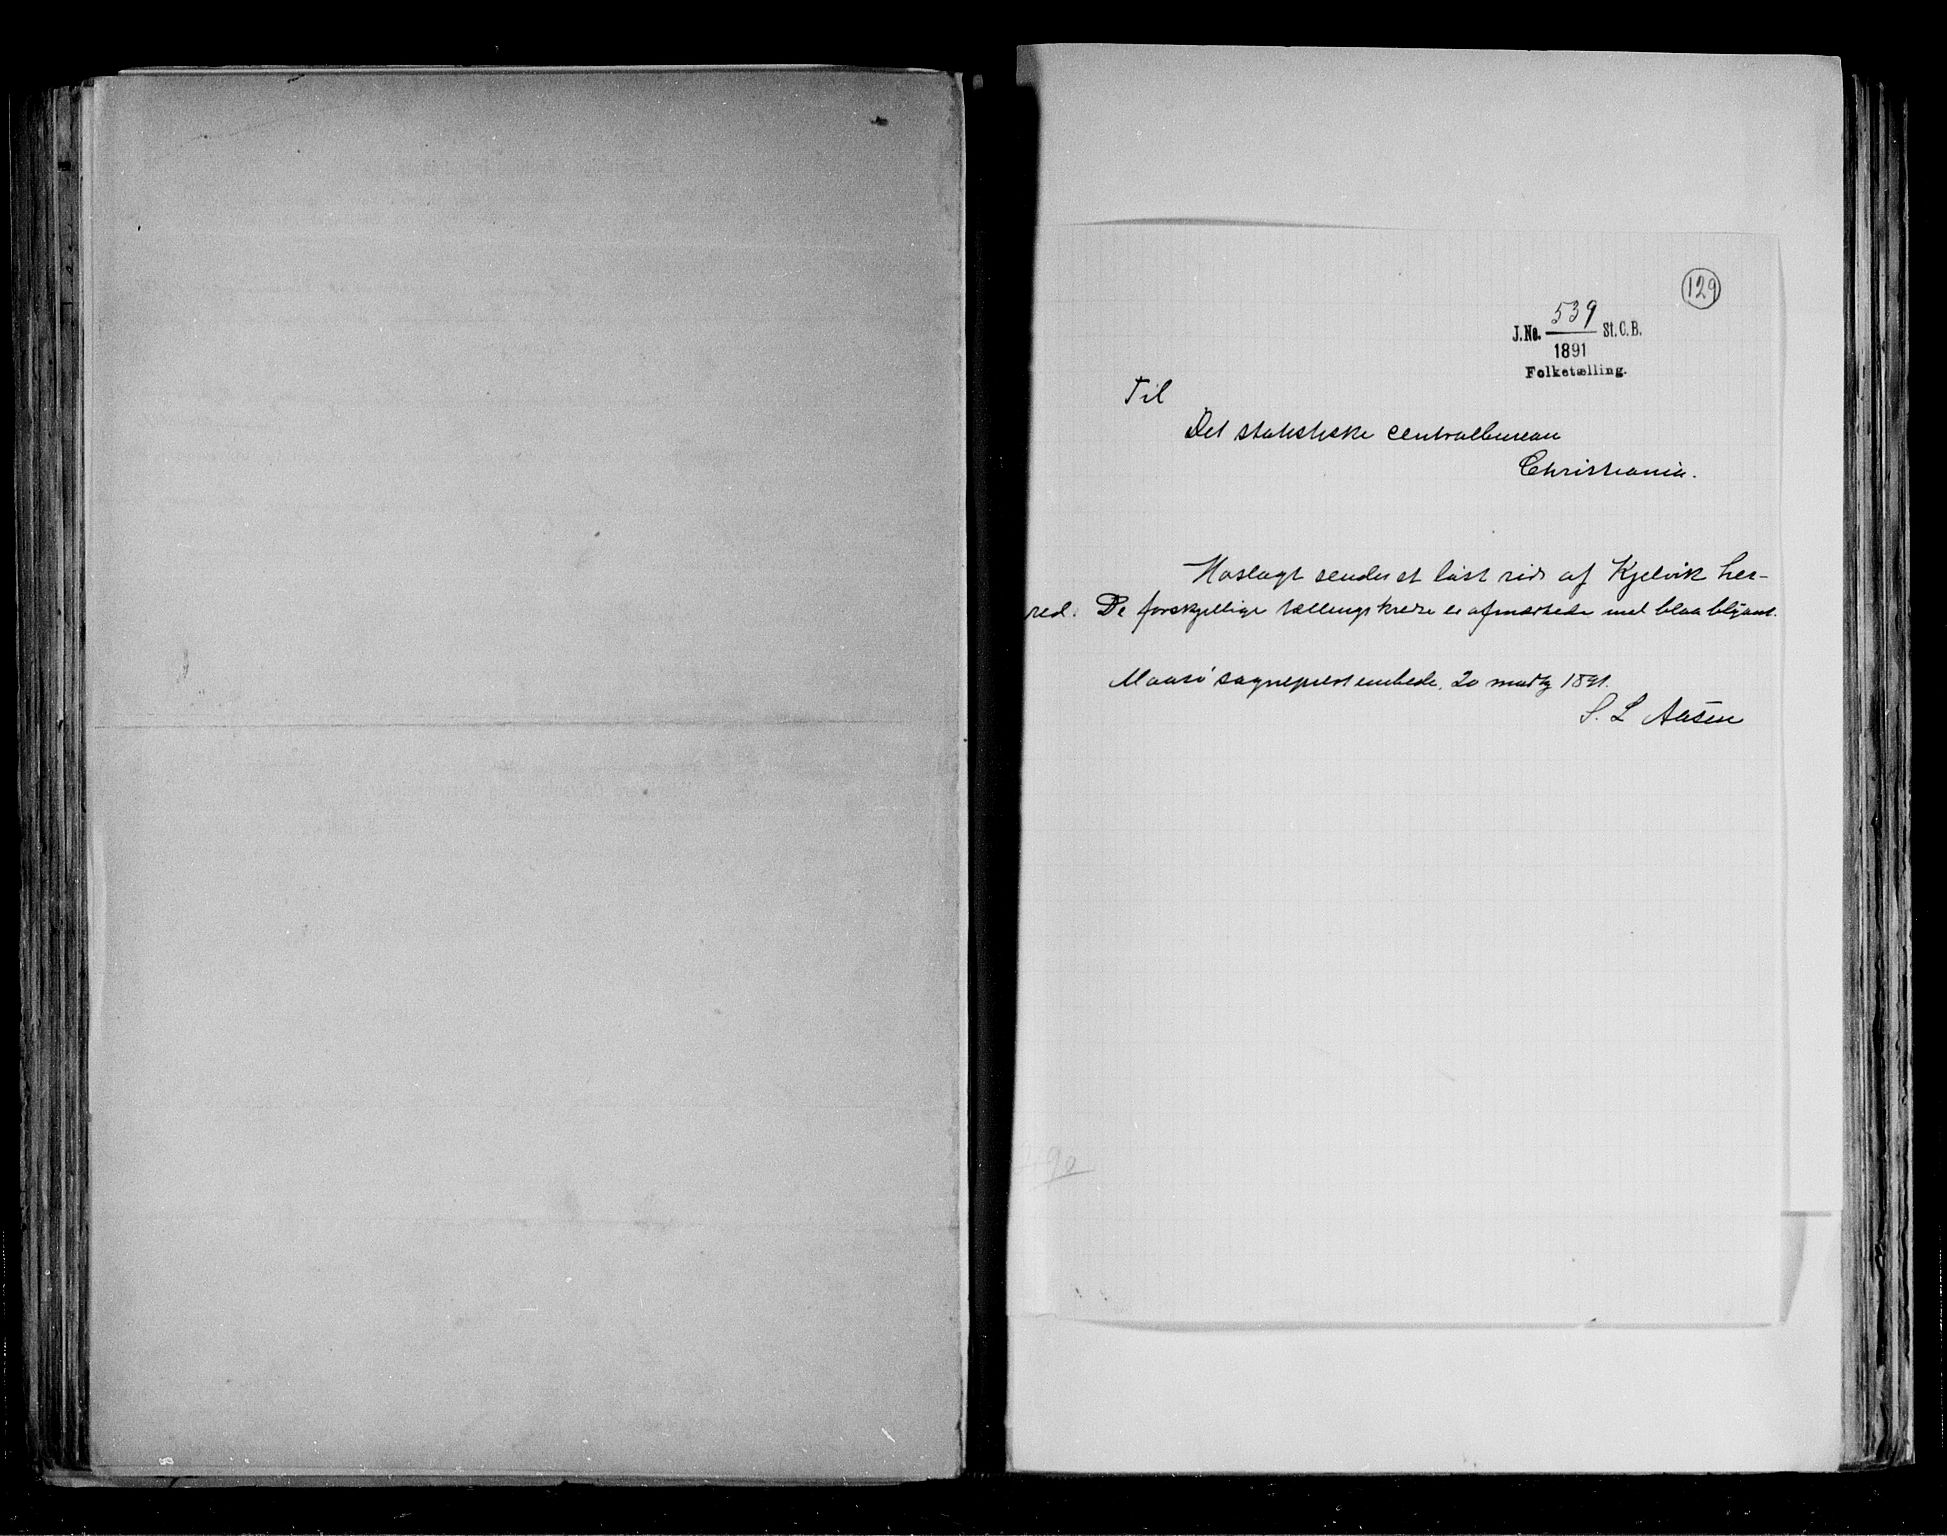 129
J.No. 539 St.C.B.
1891
Folketælling.
Til
Det statistiske centralbureau
Christiania.
Hoslagt sendes et løst rids af Kjelvik her-
red. De forskjellige tællingskredse er afmærkede med blaa blyant.
Maasø sognepræstembede, 20 1891.
S. L Aasen
90